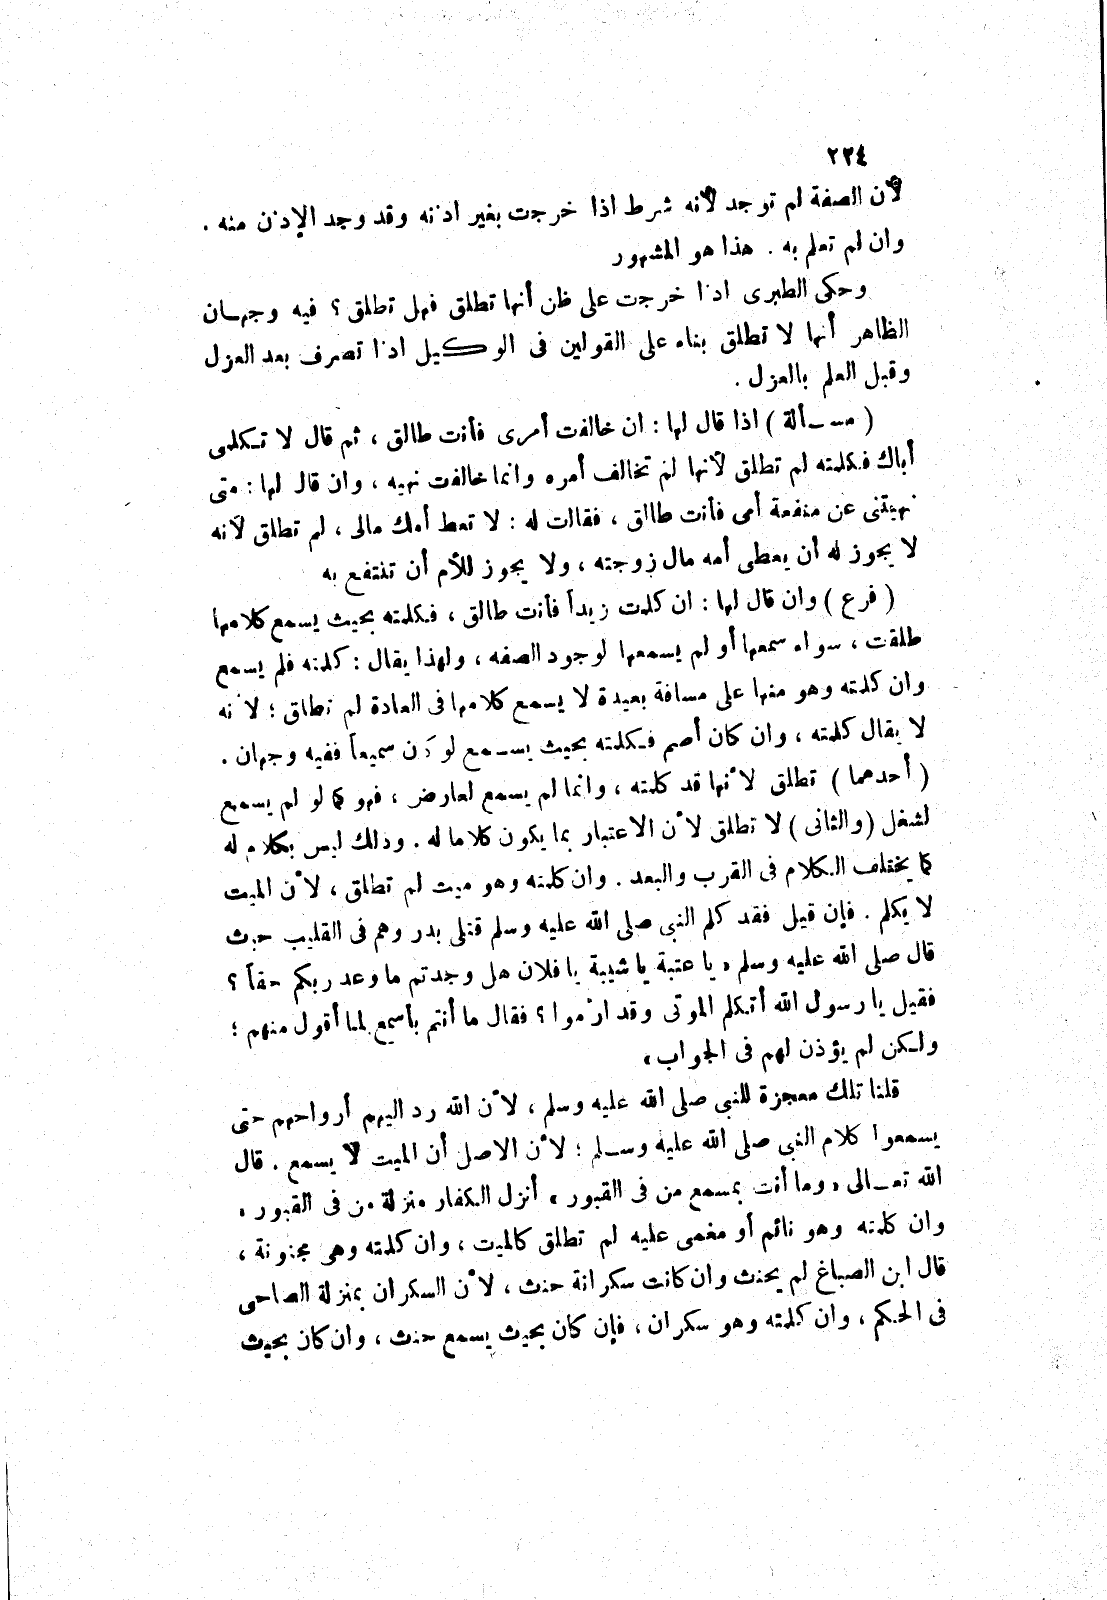 ٢٢٤
لأن الصفة لم توجد لأنه شرط اذا خرجت بغير اذنه وقد وجد الإذن منه .
وان لم تعلم به . هذا هو المشهور
وحكى الطبرى اذا خرجت على ظن أنها تطلق فهل تطلق ؟ فيه وجهان
الظاهر أنها لا تطلق بناء على القولين فى الوكيل اذا تصرف بعد العزل
وقبل العلم بالعزل .
( مسألة ) اذا قال لها : ان خالفت أمرى فأنت طالق ، ثم قال لا تكلمى
أباك فكلمته لم تطلق لأنها لم تخالف أمره وانما خالفت نهيه ، وان قال لها : متى
نهيتنى عن منفعة أمى فأنت طالق ، فقالت له : لا تعط أمك مالى ، لم تطلق لأنه
لا يجوز له أن يعطى أمه مال زوجته ، ولا يجوز للأم أن تنتفع به
( فرع ) وان قال لها : ان كلمت زيداً فأنت طالق ، فكلمته بحيث يسمع كلامها
طلقت ، سواء سمعها أو لم يسمعها لوجود الصفه ، ولهذا يقال : كلمته فلم يسمع
وان كلمته وهو منها على مسافة بعيدة لا يسمع كلامها فى العادة لم تطلق ؛ لأنه
لا يقال كلمته ، وان كان أصم فكلمته بحيث يسمع لو كان سميعاً ففيه وجهان .
( أحدهما ) تطلق لأنها قد كلمته ، وانما لم يسمع لعارض ، فهو كما لو لم يسمع
لشغل ( والثانى ) لا تطلق لأن الاعتبار بما يكون كلاما له . وذلك ليس بكلام له
كما يختلف الكلام فى القرب والبعد . وان كلمته وهو ميت لم تطلق ، لأن الميت
لا يكلم . فإن قيل فقد كلم النبى صلى الله عليه وسلم قتلى بدر وهم فى القليب حيث
قال صلى الله عليه وسلم « يا عتبة يا شيبة يا فلان هل وجدتم ما وعد ربكم حقاً ؟
فقيل يا رسول الله أتكلم الموتى وقد ارموا ؟ فقال ما أنتم بأسمع لما أقول منهم ؛
ولكن لم يؤذن لهم فى الجواب »
قلنا تلك معجزة للنبى صلى الله عليه وسلم ، لأن الله رد اليهم أرواحهم حتى
يسمعوا كلام النبى صلى الله عليه وسلم ؛ لأن الاصل أن الميت لا يسمع . قال
الله تعالى « وما أنت بمسمع من فى القبور » أنزل الكفار منزلة من فى القبور .
وان كلمته وهو نائم أو مغمى عليه لم تطلق كالميت ، وان كلمته وهى مجنونة ،
قال ابن الصباغ لم يحنث وان كانت سكرانة حنث ، لأن السكران بمنزلة الصاحى
فى الحكم ، وان كلمته وهو سكران ، فإن كان بحيث يسمع حنث ، وان كان بحيث